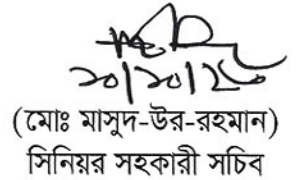 ২০/১০/২০
(মোঃ মাসুদ-উর-রহমান)
সিনিয়র সহকারী সচিব